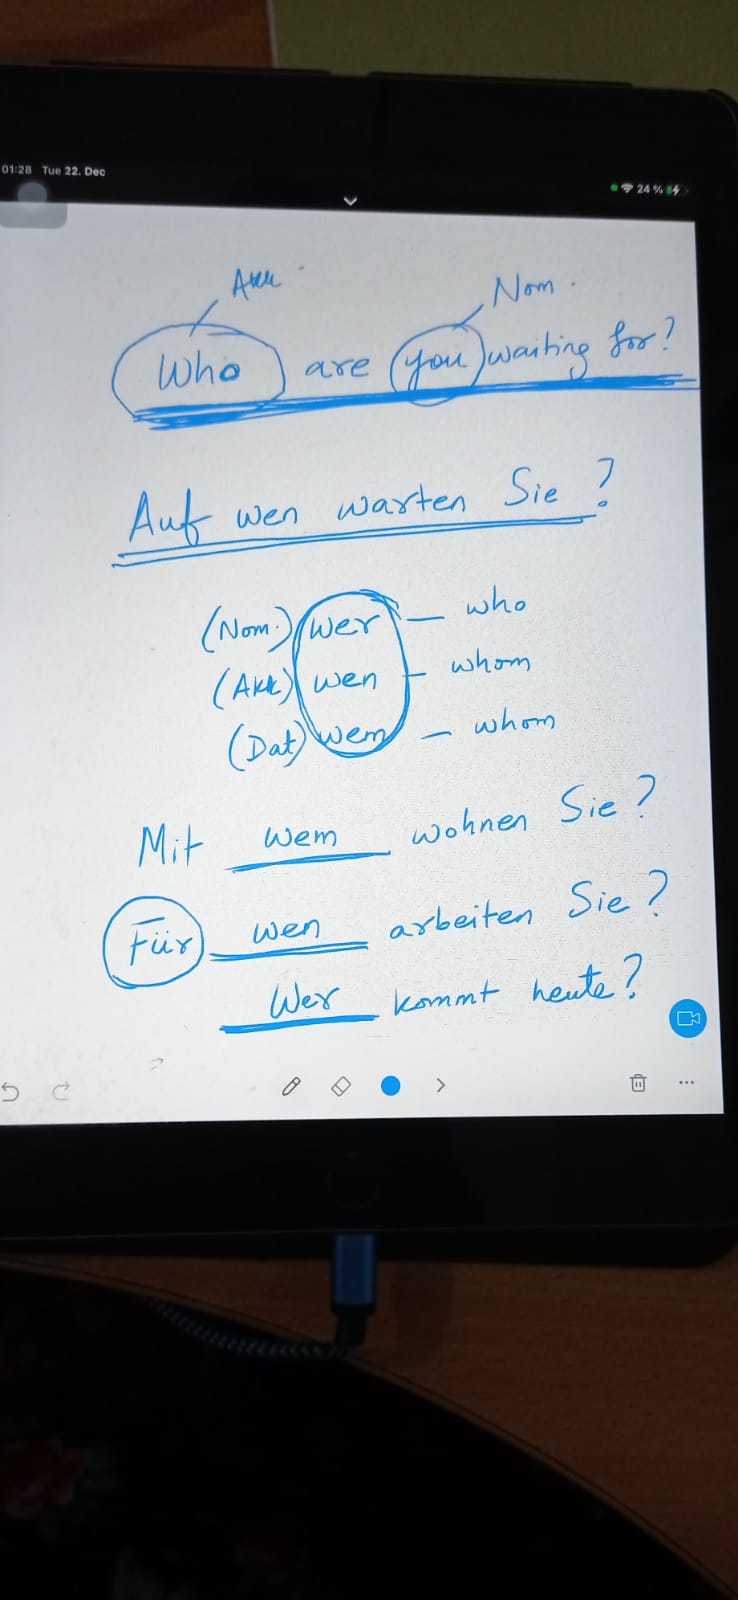 01:28 Tue 22. Dec
24 %
Akk. Nom.
Who are you waiting for?
Auf wen warten Sie?
(Nom.) wer — who
(Akk) wen — whom
(Dat) wem — whom
Mit wem wohnen Sie?
Für wen arbeiten Sie?
Wer kommt heute?